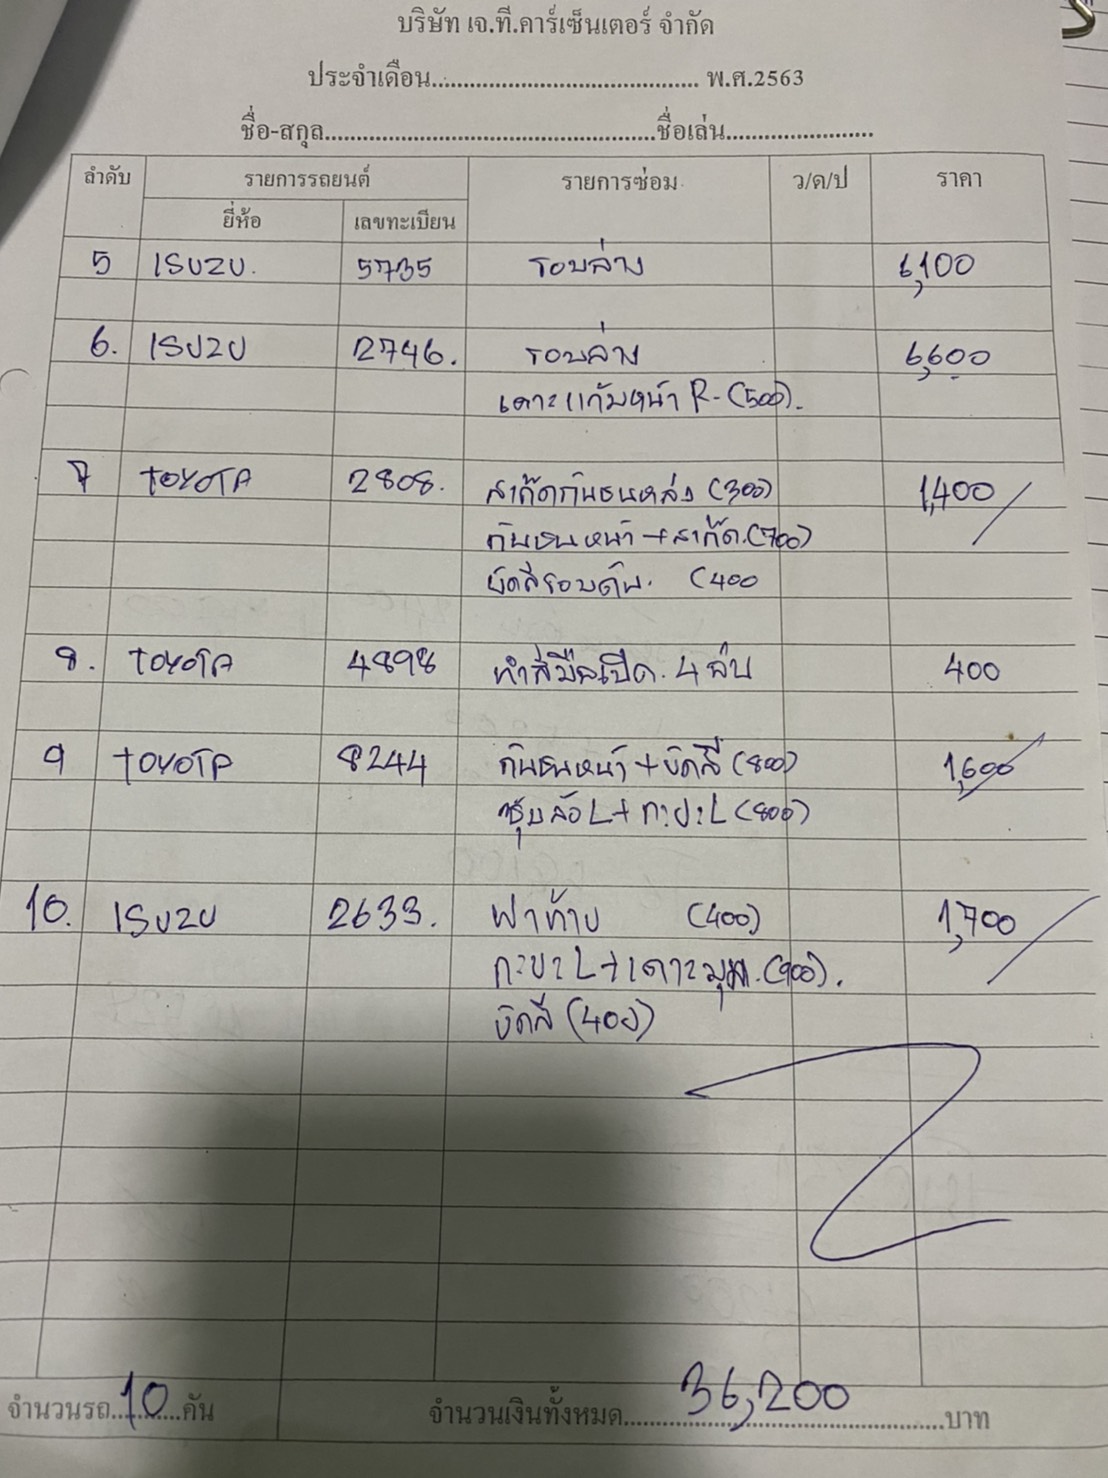 บริษัท เจ.ที.คาร์เซ็นเตอร์ จำกัด
ประจำเดือน.......................................... พ.ศ.2563
ชื่อ-สกุล....................................................ชื่อเล่น.......................
ลำดับ รายการรถยนต์ รายการซ่อม ว/ด/ป ราคา
ยี่ห้อ เลขทะเบียน
5 ISUZU. 5735 รอบล่าง 6,100
6. ISUZU 2746. รอบล่าง 6,600
เคาะแก้มหน้า R-(500).
7 TOYOTA 2808. สเก๊ตกันชนหลัง (300) 1,400
กันชนหน้า+สเก๊ต.(700)
ขัดสีรอบคัน. (400
8. TOYOTA 4898 ทำสีมือเปิด. 4 อัน 400
9 TOYOTA 8244 กันชนหน้า+ขัดสี (800) 1,600
ซุ้มล้อ L+กะบะ L (800)
10. ISUZU 2633. ฝาท้าย (400) 1,700
กะบะ L+เคาะมุม.(900).
ขัดสี (400)
จำนวนรถ..10..คัน จำนวนเงินทั้งหมด......36,200......บาท